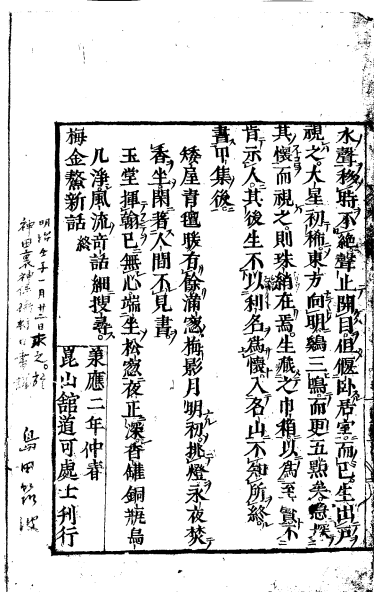 水聲移時不絶聲止開目但偃臥居室而已生出戸
視之大星初稀東方向明鷄三鳴而更五點矣急探
其懷而視之則珠綃在焉生藏之巾箱以爲至寶不
肯示人其後生不以利名爲懷入名山不知所終。
書甲集後。
矮屋青氊暖有餘滿窓梅影月明初挑燈永夜焚
香坐閑著人間不見書
玉堂揮翰已無心端坐松窓夜正深香鑵銅瓶烏
几淨風流奇話細搜尋。
梅金鰲新話 終
承應二年仲春
崑山館道可處士刊行
明治 一月廿二日求之。於
神田裏神保
島田